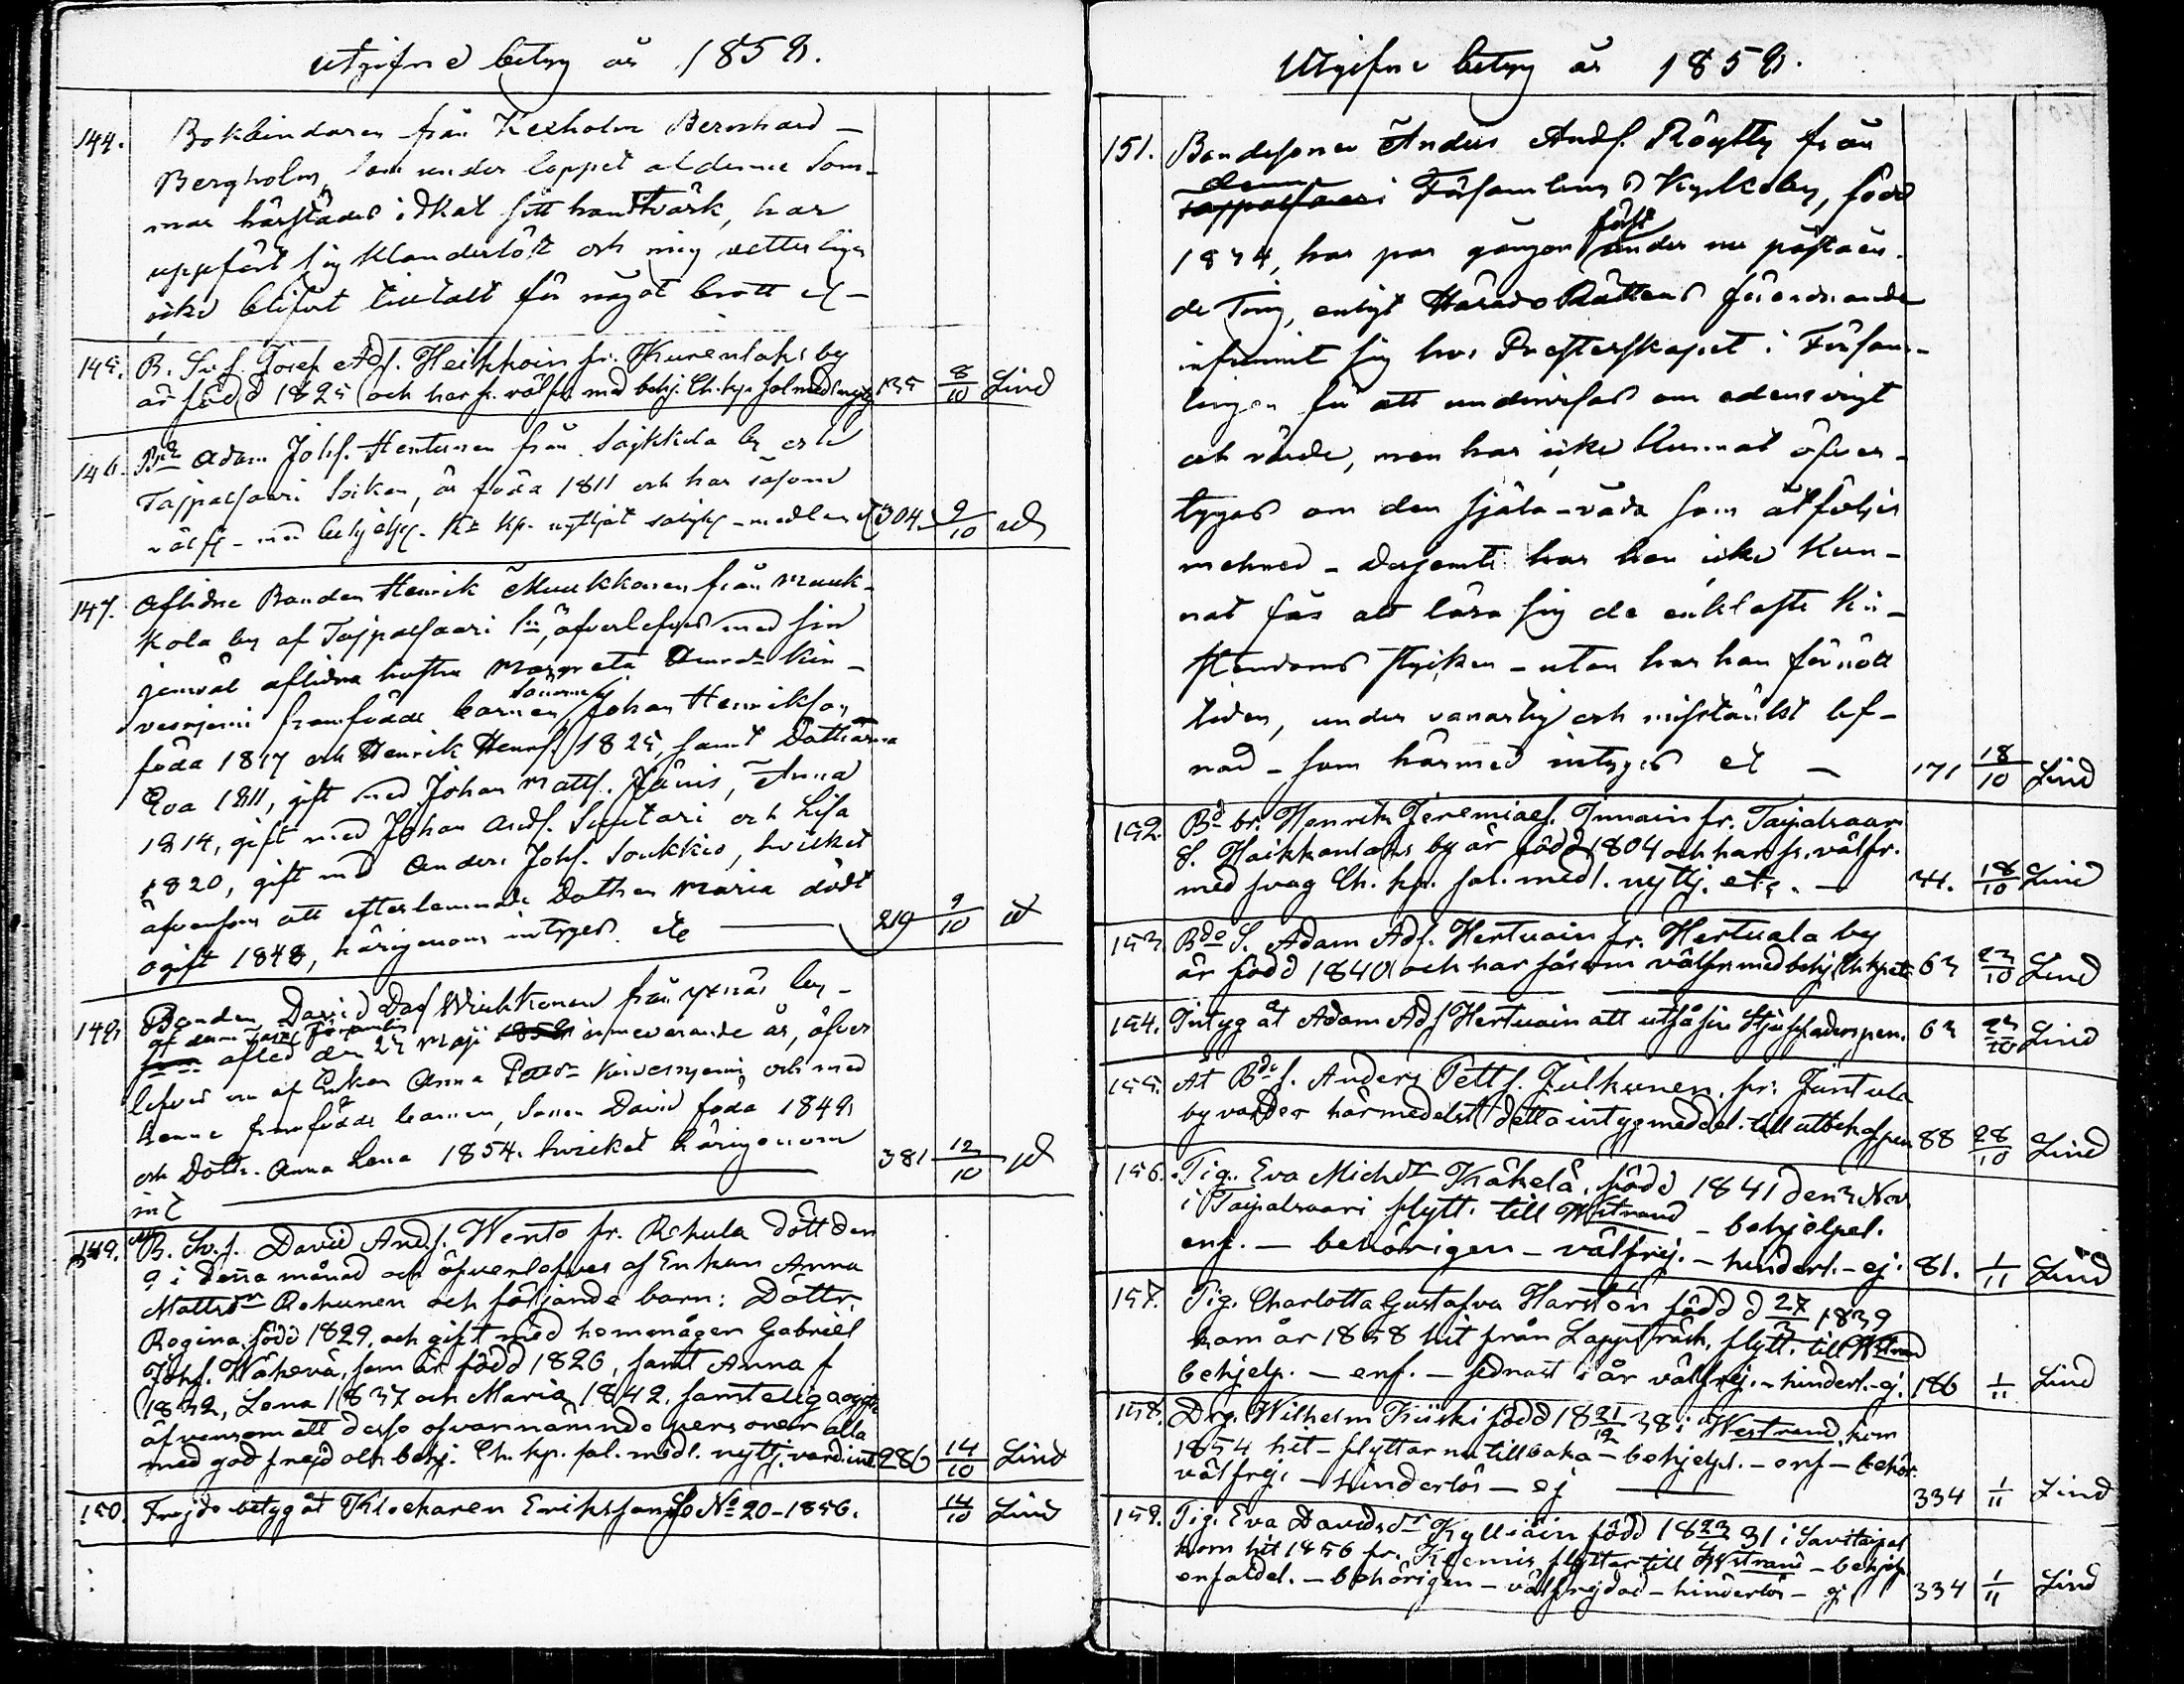 Utgifne betyg år 1859.
144. Bokbindaren från Kexholm Bernhard –
Bergholm, som under loppet af denne Som-
mar härstädes idkat sitt handtvärk, har
uppfört sig klanderlöst och mig vetterligen
icke blifvit tilltalt för något brott etc –
145. B. Sv. f. Josef Adf. Heikkoin fr. Kurenlaks by
är född 1825 och har fr. välfr. med behj. Ch. kp. sal. medl. nytj. 135 8/10 Lind
146. Bd Adam Johf. Hentunen från Saikkola by och
Taipalsaari Soken, är föda 1811 och har såsom
välfr – med behjelpl. Ch. kp. nyttjat salighs – medlen etc 304. 9/10 id
147. Aflidne Bonden Henrik Muukkonen från Muuk-
kola by af Taipalsaari Sn, öfverlefves med sin
jemväl aflidna hustru Margreta Henrdr Kir-
vesniemi framfödde barnen, Sönerne Johan Henriksson
föda 1817 och Henrik Henrs. 1825, samt Döttrarna
Eva 1811, gift med Johan Matts. Jänis, Anna
1814, gift med Johan Andf. Suutari och Lisa
1820, gift med Anders Johf. Soukkio, hvilket
äfvensom att efterlemnade Dottren Maria dödt
ogift 1848, härigenom intygas etc 219 9/10 id
148. Bonden David Daf från Yxnäs by –
af denna Församling
afled den 25 Maji 1859 innevarande år, öfver
lefves nu af Enkan Anna Kirvesnjemi och med
henne framfödde barnen, Sonen David föda 1849
och Dottr. Anna Lena 1854. hvilket härigenom 381 12/10 id
int
149. B. Sv. f. David Andf. Wento fr. Rehula dött den
9 i denna månad och öfverlefves af Enkan Anna
Mattsdr Rehunen och följande barn: Döttr.
Regina, född 1829, och gift med hemmågen Gabriel
Johf. Wäkevä, som är född 1826, samt Anna f
1832, Lena 1837 och Maria 1842. samtelig ogifte
äfvensom att desse ofvannämnde personer alla
med god frejd och behj. Ch. kp. sal. medl. nyttj. vard. int. 286 14/10 Lind
150. Frejdebetyg åt Klockaren Eriksson No 20-1856. 14/10 Lind
Utgifne betyg år 1859.
151. Bondesonen Anders Andf. Röytty från
denne
Taipalsaari Församlings Kyrkoby, föda
1834, har par gånger först under nu påstaen-
de Ting, enligt Härads Rättens förordnande
infunnit sig hos Presterskapet i Försam-
lingen för att undervisas om edens vigt
och värde, men har icke kunnat öfver-
tygas om den själa-våda som åtföljer
mehned – Dessjemte har han icke kun-
nat fås att lära sig de enklaste Kri-
stendoms stycken – utan har han förnött
tiden, under vanartig och misstänkt lef-
nad – som härmed intygas etc – 171 18/10 Lind
152. Bd br. Henrik Jeremiaef. Innain fr. Taipalsaari
S. Haikkanlaks by är född 1804 och har fr. välfr.
med svag Ch. kp. sal. medl. nyttj. etc. – 34. 18/10 Lind
153. Bde S. Adam Adf. Hertuain fr. Hertuala by
är född 1840 och har såsom välfr. med behj. Ch. kp. etc 63 23/10 Lind
154. Intyg åt Adam Adf Hertuain att utfå sin Stjuffaders pen. 63 23/10 Lind
155. Åt Bde f. Anders Pettf. Julkunen fr. Jäntula
by varder härmedelst detta intyg meddel. till utbek. af pen 88 28/10 Lind
156. Pig. Eva Michdr Käkelä, född 1841 den 3 Nov.
i Taipalsaari flytt. till Wstrand – behjelpel.
enf. – behörigen – välfrej. – hinderl. – ej. 81. 1/11 Lind
157. Pig. Charlotta Gustafva Harston född d 27/3 1839
kom år 1858 hit från Lappträsk, flytt. till Wstrand
behjelp. – enf. – sednast i år välfrej. – hinderl. – ej. 186 1/11 Lind
158. Drg. Wilhelm Kiiski född 18 21/12 38 i Westrand, kom
1854 hit – flyttar nu tillbaka – behjelpl. – enf – behör.
välfrej. – hinderlös – ej 334 1/11 Lind
159. Pig. Eva Davidsdr Kylliäin född 18 23/7 31 i Savitaipal
kom hit 1856 fr. Klemis flyttar till Wstrand – behjelp
enfaldel. – behörigen – välfrejdad – hinderlös – ej 334 1/11 Lind